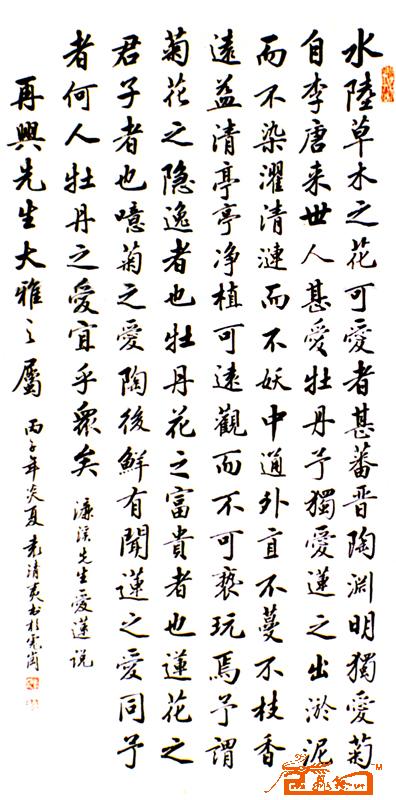 水陸草木之花可愛者甚蕃晋陶渊明獨愛菊
自李唐来世人甚愛牡丹予獨愛蓮之出淤泥
而不染濯清漣而不妖中通外直不蔓不枝香
遠益清亭亭净植可遠觀而不可褻玩焉予謂
菊花之隐逸者也牡丹花之富貴者也蓮花之
君子者也噫菊之愛陶後鮮有聞蓮之愛同予
者何人牡丹之愛宜乎衆矣 濂溪先生愛蓮说
再興先生大雅之屬 丙子年炎夏袁清书於岗